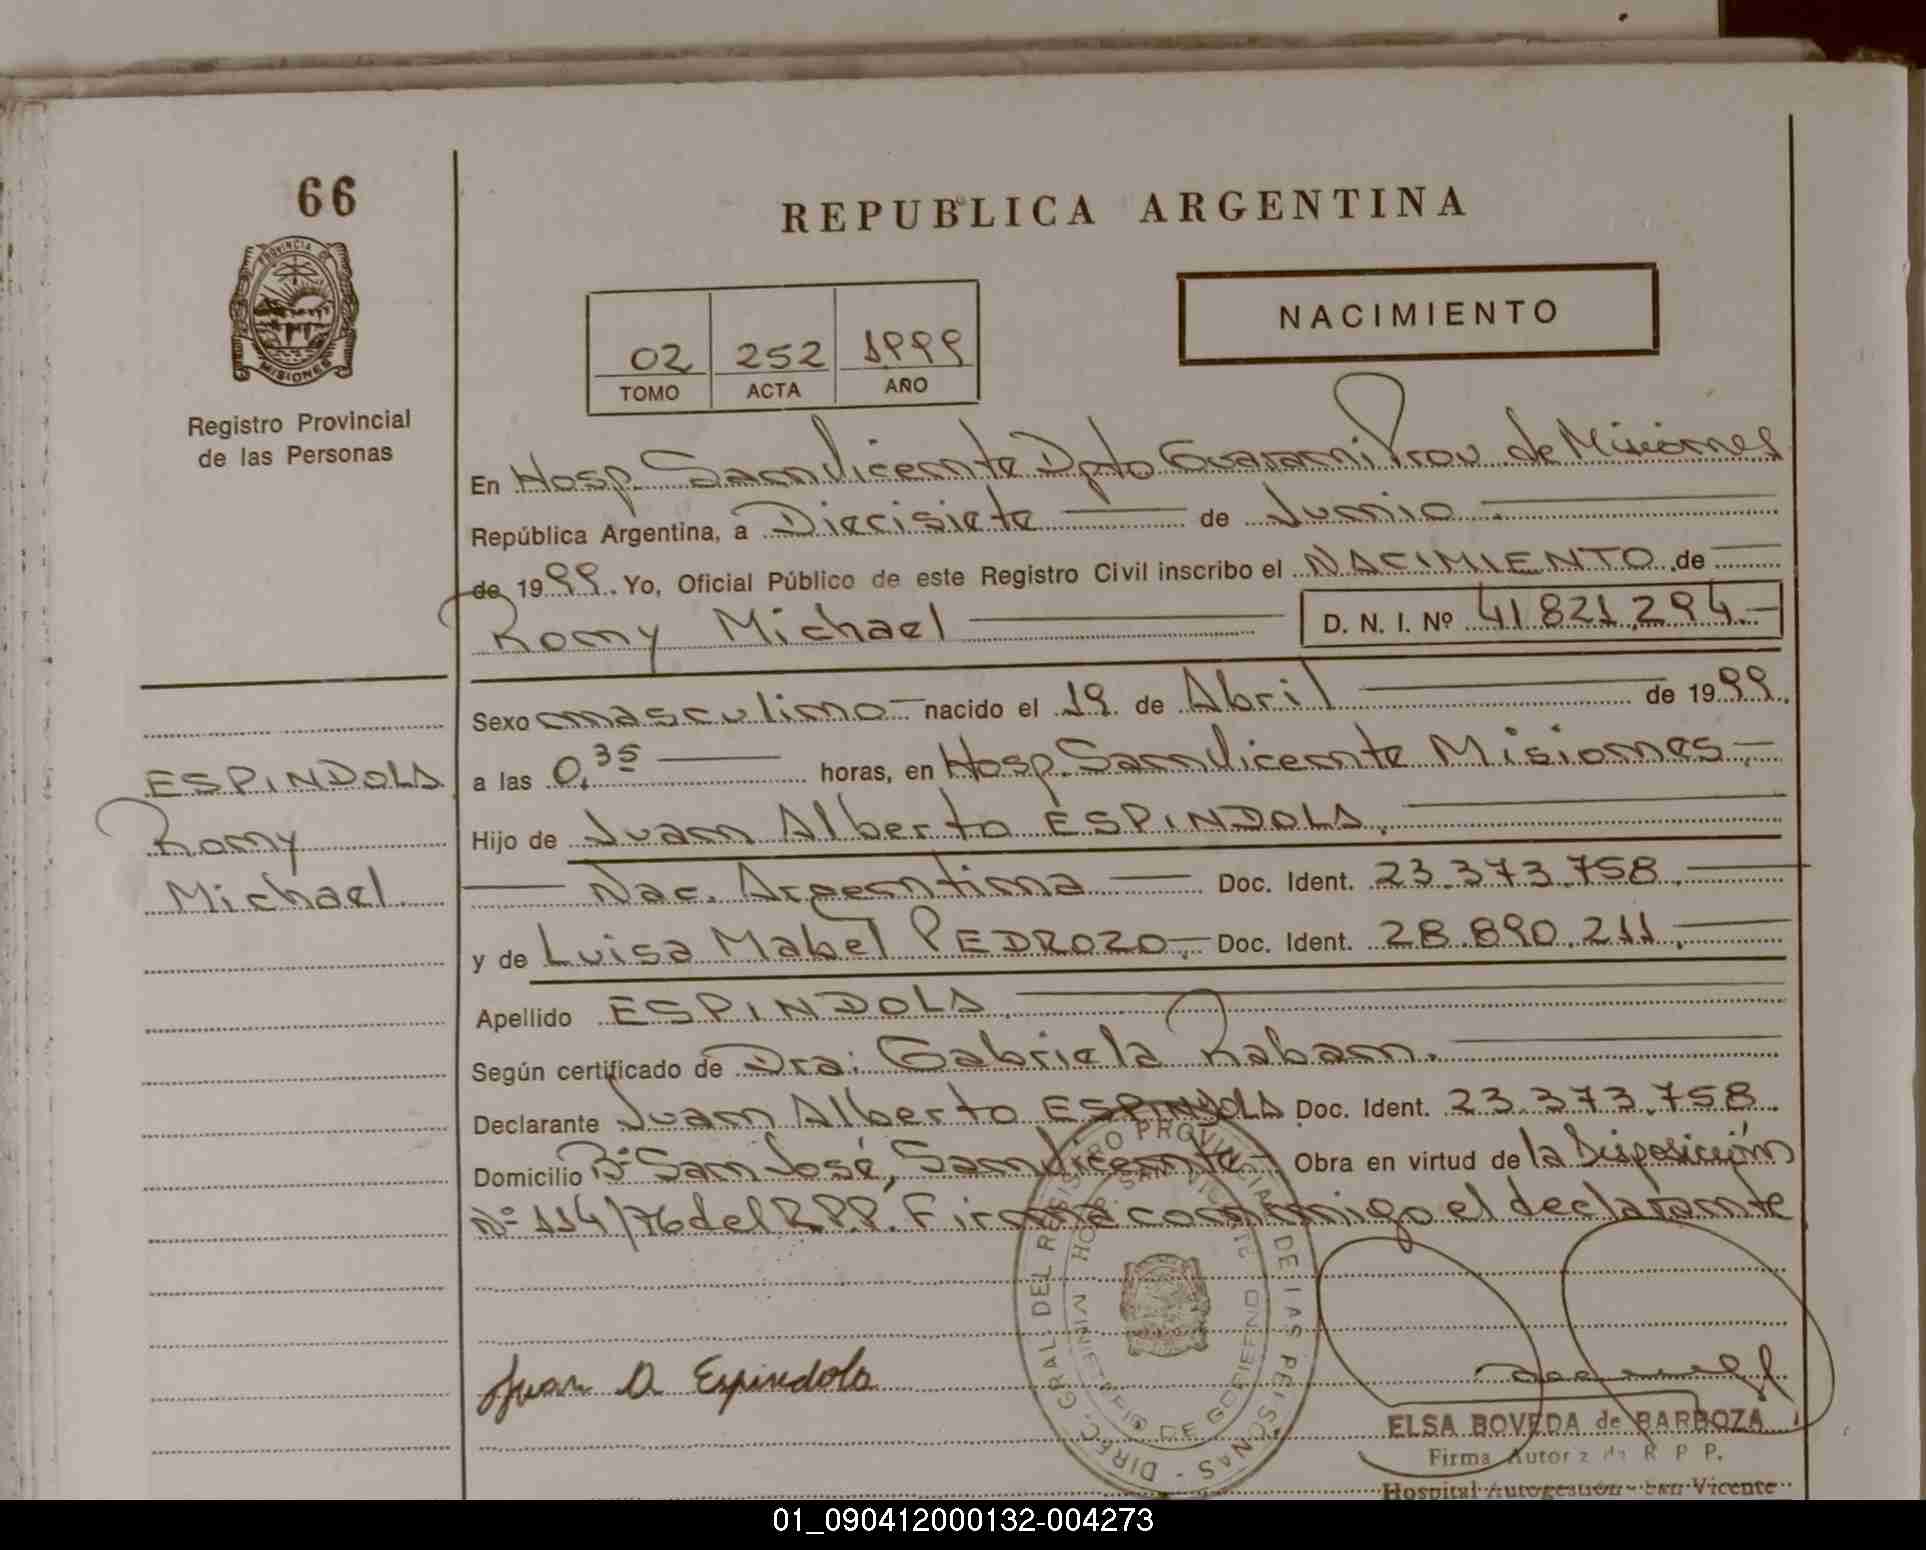 66
REPUBLICA ARGENTINA
PROVINCIA DE
MISIONES
Registro Provincial
de las Personas
02 252 1999
TOMO ACTA AÑO
NACIMIENTO
En Hosp. San Vicente Dpto Guarani Prov. de Misiones
República Argentina, a Diecisiete de Junio
de 1999. Yo, Oficial Público de este Registro Civil inscribo el NACIMIENTO de
Romy Michael D. N. I. Nº 41821.294.-
Sexo masculino nacido el 19 de Abril de 1999.
a las 0,35 horas, en Hosp. San Vicente Misiones.-
Hijo de Juan Alberto ESPINDOLA.
Nac. Argentina Doc. Ident. 23.373.758.
y de Luisa Mabel PEDROZO.- Doc. Ident. 28.890.211.
Apellido ESPINDOLA.
Según certificado de Dra: Gabriela Raban.
Declarante Juan Alberto ESPINDOLA Doc. Ident. 23.373.758.
Domicilio Bº San José, San Vicente.- Obra en virtud de la Disposición
Nº 114/76 del R.P.P. Firma conmigo el declarante
ESPINDOLA
Romy
Michael
Juan A Espindola
DIREC. GRAL DEL REGISTRO PROVINCIAL DE LAS PERSONAS -
HOSP. SAN VICENTE
MINISTERIO DE GOBIERNO
ELSA BOVEDA de BARBOZA
Firma Autoriz da R P P.
Hospital Autogestión - San Vicente
01_090412000132-004273